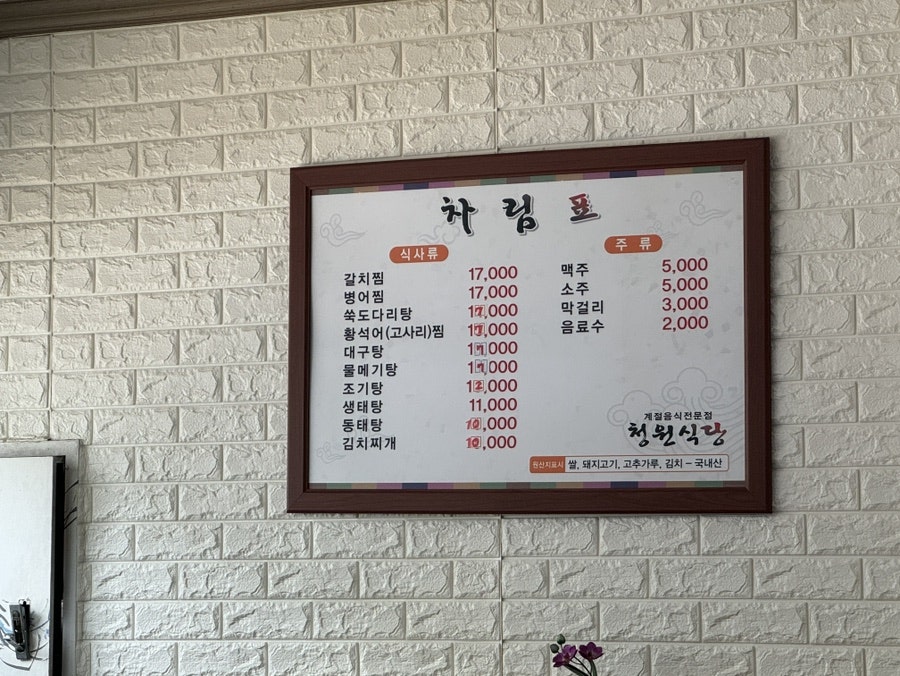 차림표
식사류
갈치찜 17,000
병어찜 17,000
쑥도다리탕 17,000
황석어(고사리)찜 13,000
대구탕 17,000
물메기탕 17,000
조기탕 12,000
생태탕 11,000
동태탕 10,000
김치찌개 10,000
주류
맥주 5,000
소주 5,000
막걸리 3,000
음료수 2,000
계절음식전문점
청원식당
원산지표시 쌀, 돼지고기, 고추가루, 김치 - 국내산